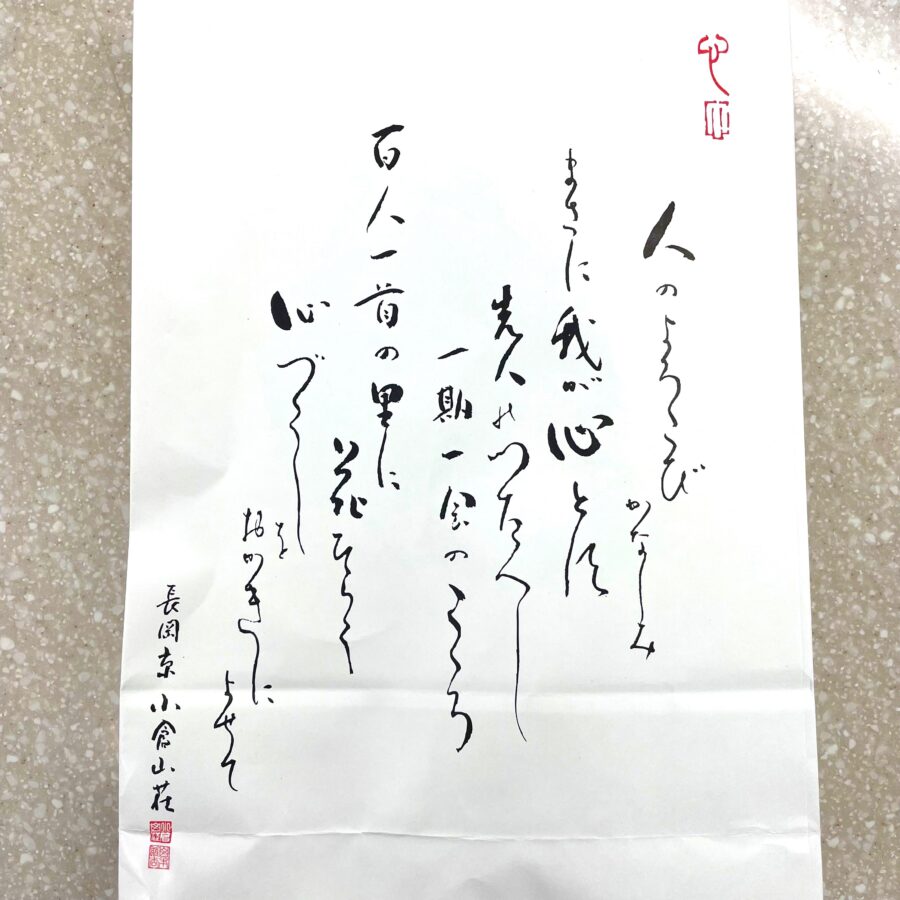 人のよろこび
かなしみ
まさに我が心とす
先人のつたへし
一期一会のこころ
百人一首の里に
花ひらく
心づくし
を
おかきに
よせて
長岡京 小倉山荘